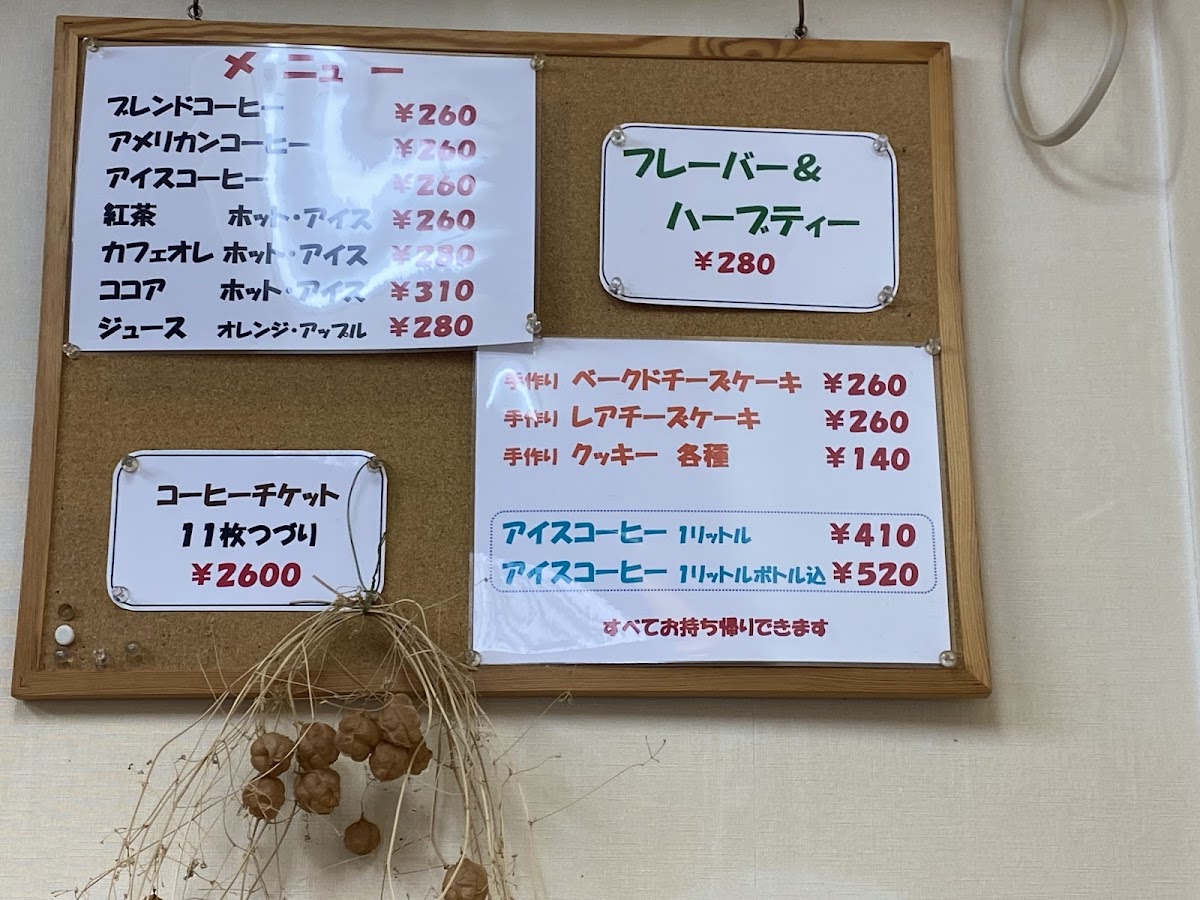 メニュー
ブレンドコーヒー ¥260
アメリカンコーヒー ¥260
アイスコーヒー ¥260
紅茶 ホット・アイス ¥260
カフェオレ ホット・アイス ¥280
ココア ホット・アイス ¥310
ジュース オレンジ・アップル ¥280
フレーバー&
ハーブティー
¥280
手作り ベークドチーズケーキ ¥260
手作り レアチーズケーキ ¥260
手作り クッキー 各種 ¥140
アイスコーヒー 1リットル ¥410
アイスコーヒー 1リットルボトル込 ¥520
すべてお持ち帰りできます
コーヒーチケット
11枚つづり
¥2600